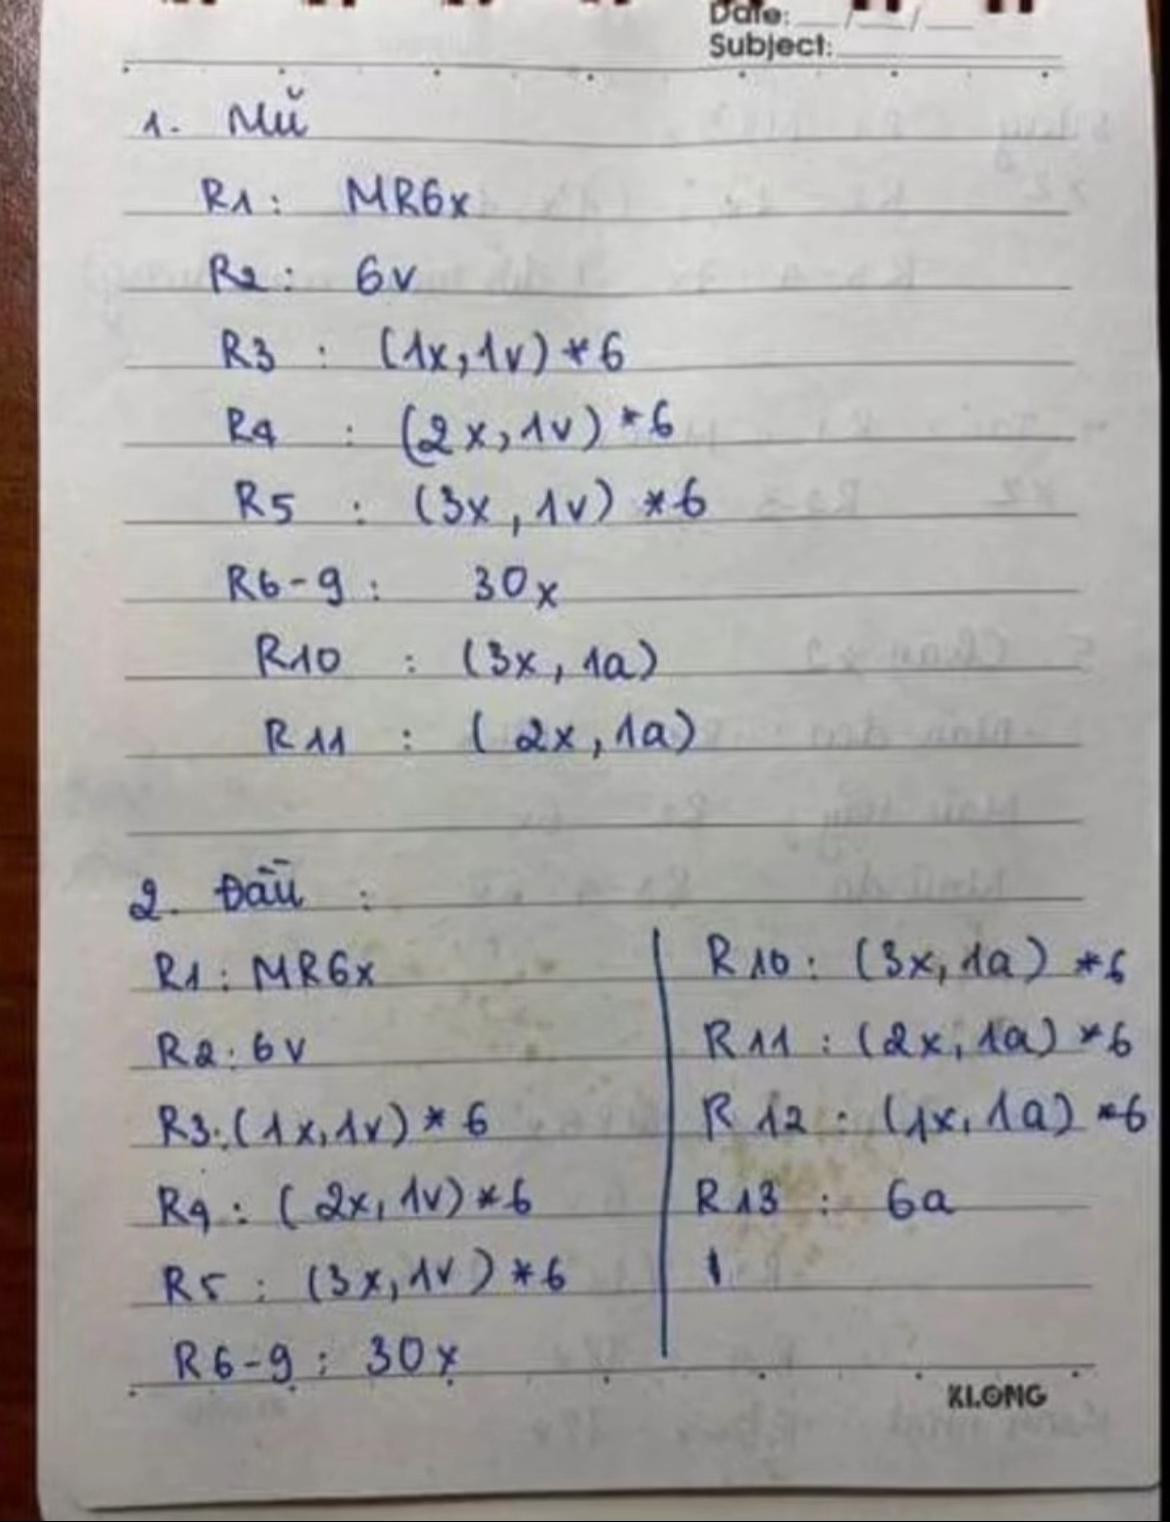 Date: __/__/__
Subject:
1. Mũ
R1: MR6x
R2: 6v
R3 : (1x,1v) *6
R4 : (2x,1v) *6
R5 : (3x,1v) *6
R6-9 : 30x
R10 : (3x,1a)
R11 : (2x,1a)
2. Đầu :
R1: MR6x
R2: 6v
R3: (1x,1v) * 6
R4 : (2x,1v) *6
R5 : (3x,1v) *6
R6-9 : 30x
R10 : (3x,1a) *6
R11 : (2x,1a) *6
R12 : (1x,1a) *6
R13 : 6a
KLONG